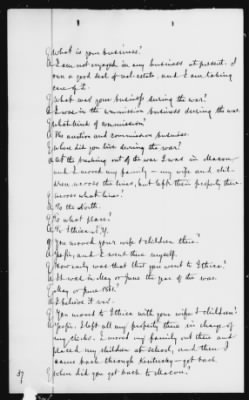 Q What is your business?
A I am not engaged in any business at present. I
own a good deal of real estate, and I am taking
care of it.
Q What was your business during the war?
A I was in the commission business during the war.
Q What kind of commission?
A The auction and commission business.
Q Where did you live during the war?
A At the breaking out of the war I was in Macon
and I moved my family – my wife and chil-
dren across the lines, but left their property there.
Q Across what lines?
A To the North.
Q To what place?
A To Ithica N.Y.
Q You moved your wife & children there?
A Yes sir, and I went there myself.
Q How early was that that you went to Ithica?
A It was in May or June the year of the war.
Q May or June 1861?
A I believe it was.
Q You moved to Ithica with your wife & children?
A Yes sir. I left all my property there in charge of
my clerks. I moved my family out there and
placed my children at school, and then I
came back through Kentucky – got back.
Q When did you get back to Macon?
37